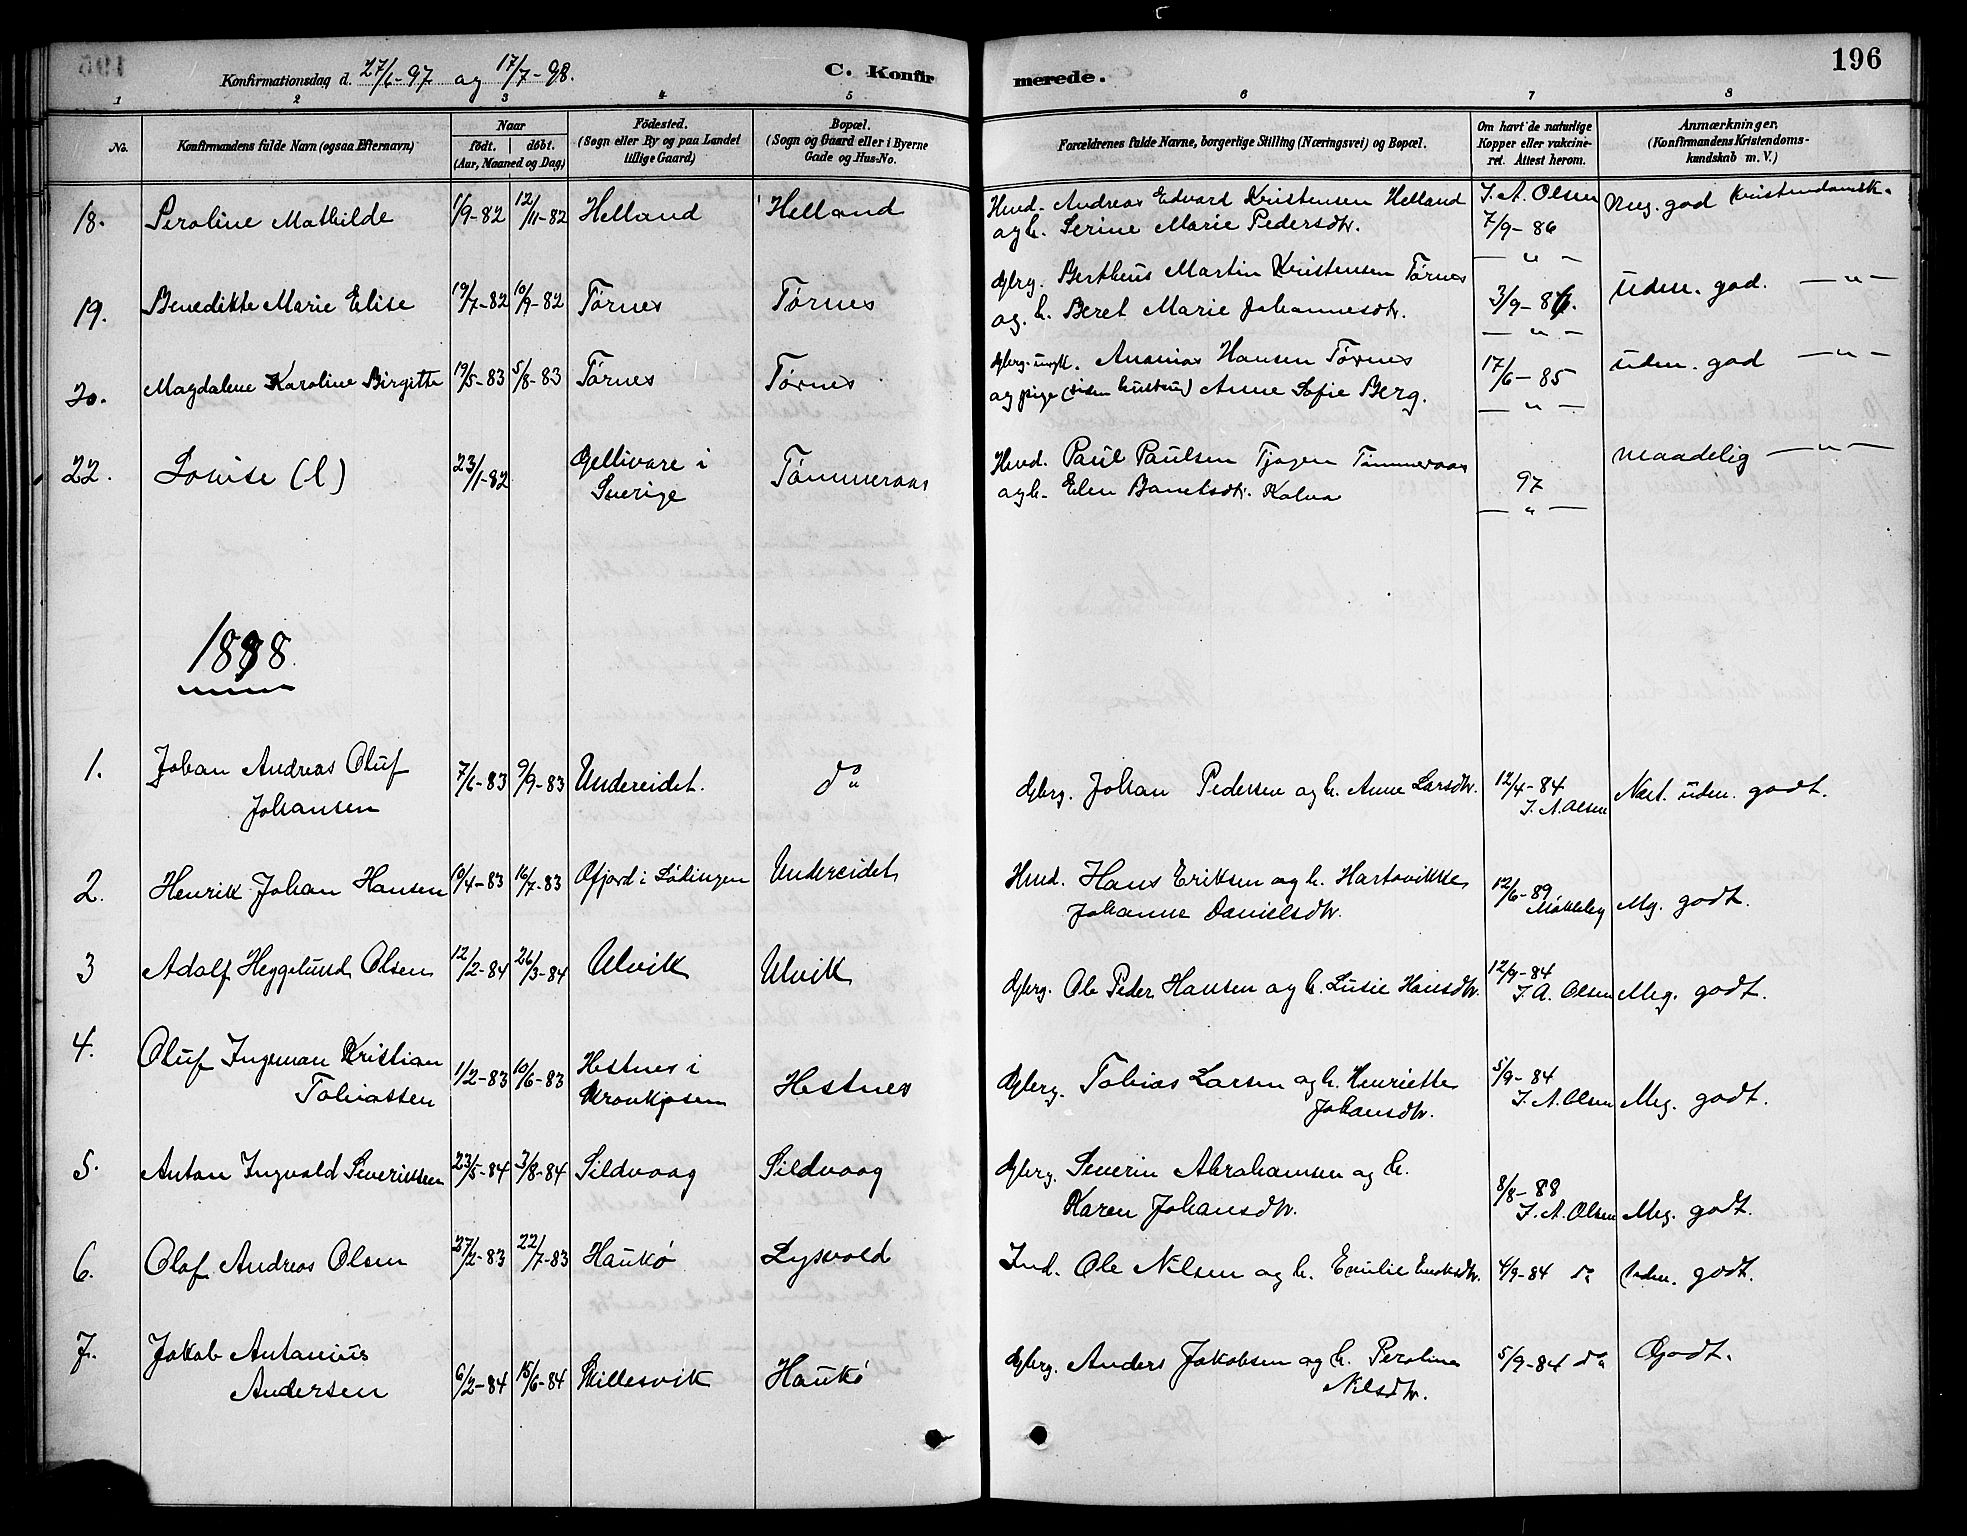 196
Konfirmationsdag d. 27/6-97 og 17/7-98.
C. Konfirmerede.
1 2 3 4 5 6 7 8
No.
Konfirmandens fulde Navn (ogsaa Efternavn)
Naar
født. døbt.
(Aar, Maaned og Dag)
Fødested.
(Sogn eller By og paa Landet
tillige Gaard)
Bopæl.
(Sogn og Gaard eller i Byerne
Gade og Hus-No.
Forældrenes fulde Navne, borgerlige Stilling (Næringsvei) og Bopæl.
Om havt de naturlige
Kopper eller vakcine-
ret. Attest herom.
Anmærkninger.
(Konfirmandens Kristendoms-
kundskab m. V.)
18. Peroline Mathilde 1/9-82 12/11-82 Helland Helland Hmd. Andreas Edvard Kristensen Helland J. A. Olsen Meg. god Kristendomsk.
og h. Serine Marie Pedersdtr. 7/9-86
— " —
19. Benedikte Marie Elise 19/7-82 10/9-82 Tørnes Tørnes Gbrg. Bertheus Martin Kristensen Tørnes uden. god. — " —
og. h. Beret Marie Johannesdtr. 3/9-86.
— " —
20. Magdalene Karoline Birgitte 19/5-83 5/8-83 Tørnes Tørnes Gbrg. ungk. Ananias Hansen Tørnes 17/6-85 uden. god — " —
og pige (siden hustru) Anne Sofie Berg. — " —
22. Lovise (l) 23/1-82 Gellivare i Tømmeraas Hmd. Paul Paulsen Tømmeraas maadelig — " —
Sverige og h. Elen 97
— " —
1898.
1. Johan Andreas Oluf 7/6-83 9/9-83 Undereidet. do Gbrg. Johan Pedersen og h. Anne Larsdtr. 12/4-84 Næst. uden. godt.
Johansen J. A. Olsen
2. Henrik Johan Hansen 10/4-83 16/7-83 Ofjord i Lødingen Undereidet Hmd. Hans Eriksen og h. Hartvikke 12/6-89 Mg. godt.
Johanne Danielsdtr.
3 Adolf Heggelund Olsen 12/2-84 26/3-84 Ulvik Ulvik Gbrg. Ole Peder Hansen og h. Lusie Hansdtr. 12/9-84 Meg. godt.
J. A. Olsen
4. Oluf Ingeman Kristian 1/2-83 10/6-83 Hestnes i Hestnes Gbrg. Tobias Larsen og h. Henriette 5/9-84 Meg. godt.
Tobiassen Johansdtr. J. A. Olsen
5. Anton Ingvald Severinsen 23/5-84 3/8-84 Sildvaag Sildvaag Gbrg. Severin Abrahamsen og h. 8/8-88
Karen Johansdtr. J. A. Olsen Meg. godt.
6. Olaf Andreas Olsen 27/2-83 22/7-83 Haukø Lysvold Ind. Ole Nilsen og h. Emilie 4/9-84 do Uden. godt.
7. Jakob Antonius 6/2-84 15/6-84 Skillesvik Haukø Gbrg. Anders Jakobsen og h. Peroline 5/9-84 do Godt.
Andersen Nilsdtr.